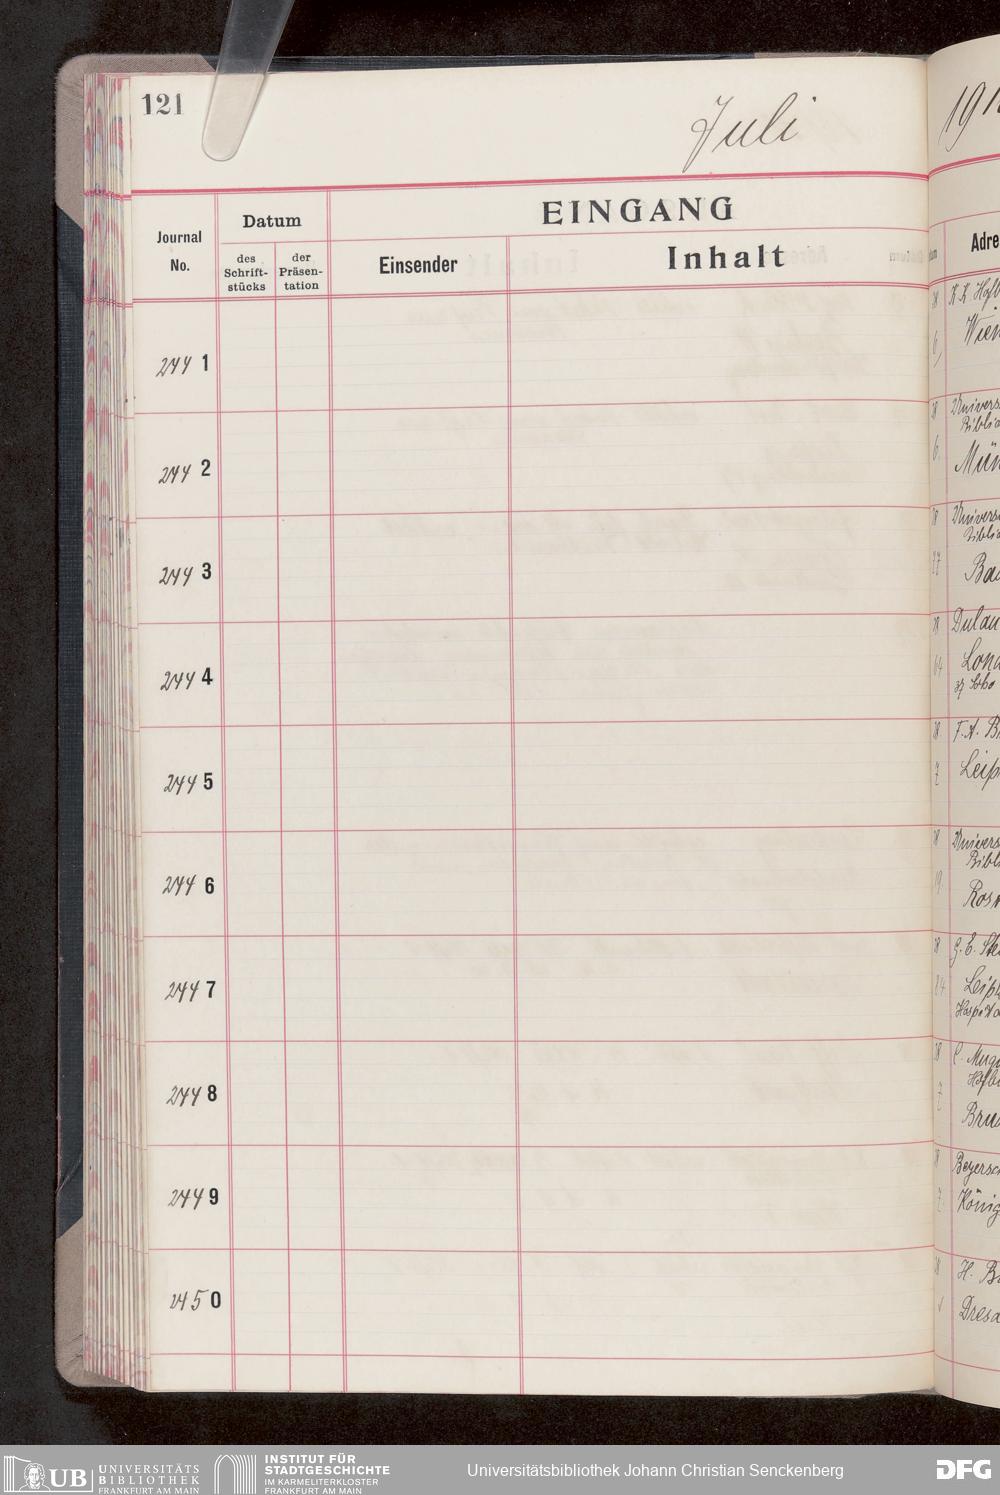 121
Juli
EINGANG
Journal
No.
Datum
des
Schrift-
stücks
der
Präsen-
tation
Einsender
Inhalt
244 1
244 2
244 3
244 4
244 5
244 6
244 7
244 8
244 9
245 0
191
Adre
K. K. Hofb
Wien
Univers
Biblio
Mün
Univers
Biblio
Dulau
Lond
F. A. B
Leip
Univers
Bibl
Rost
G. E. Ste
Leip
Hospita
C.
Hofb
Brux
Beyersc
König
H. B
Dresd
UB UNIVERSITÄTS
BIBLIOTHEK
FRANKFURT AM MAIN
INSTITUT FÜR
STADTGESCHICHTE
IM KARMELITERKLOSTER
FRANKFURT AM MAIN
Universitätsbibliothek Johann Christian Senckenberg
DFG